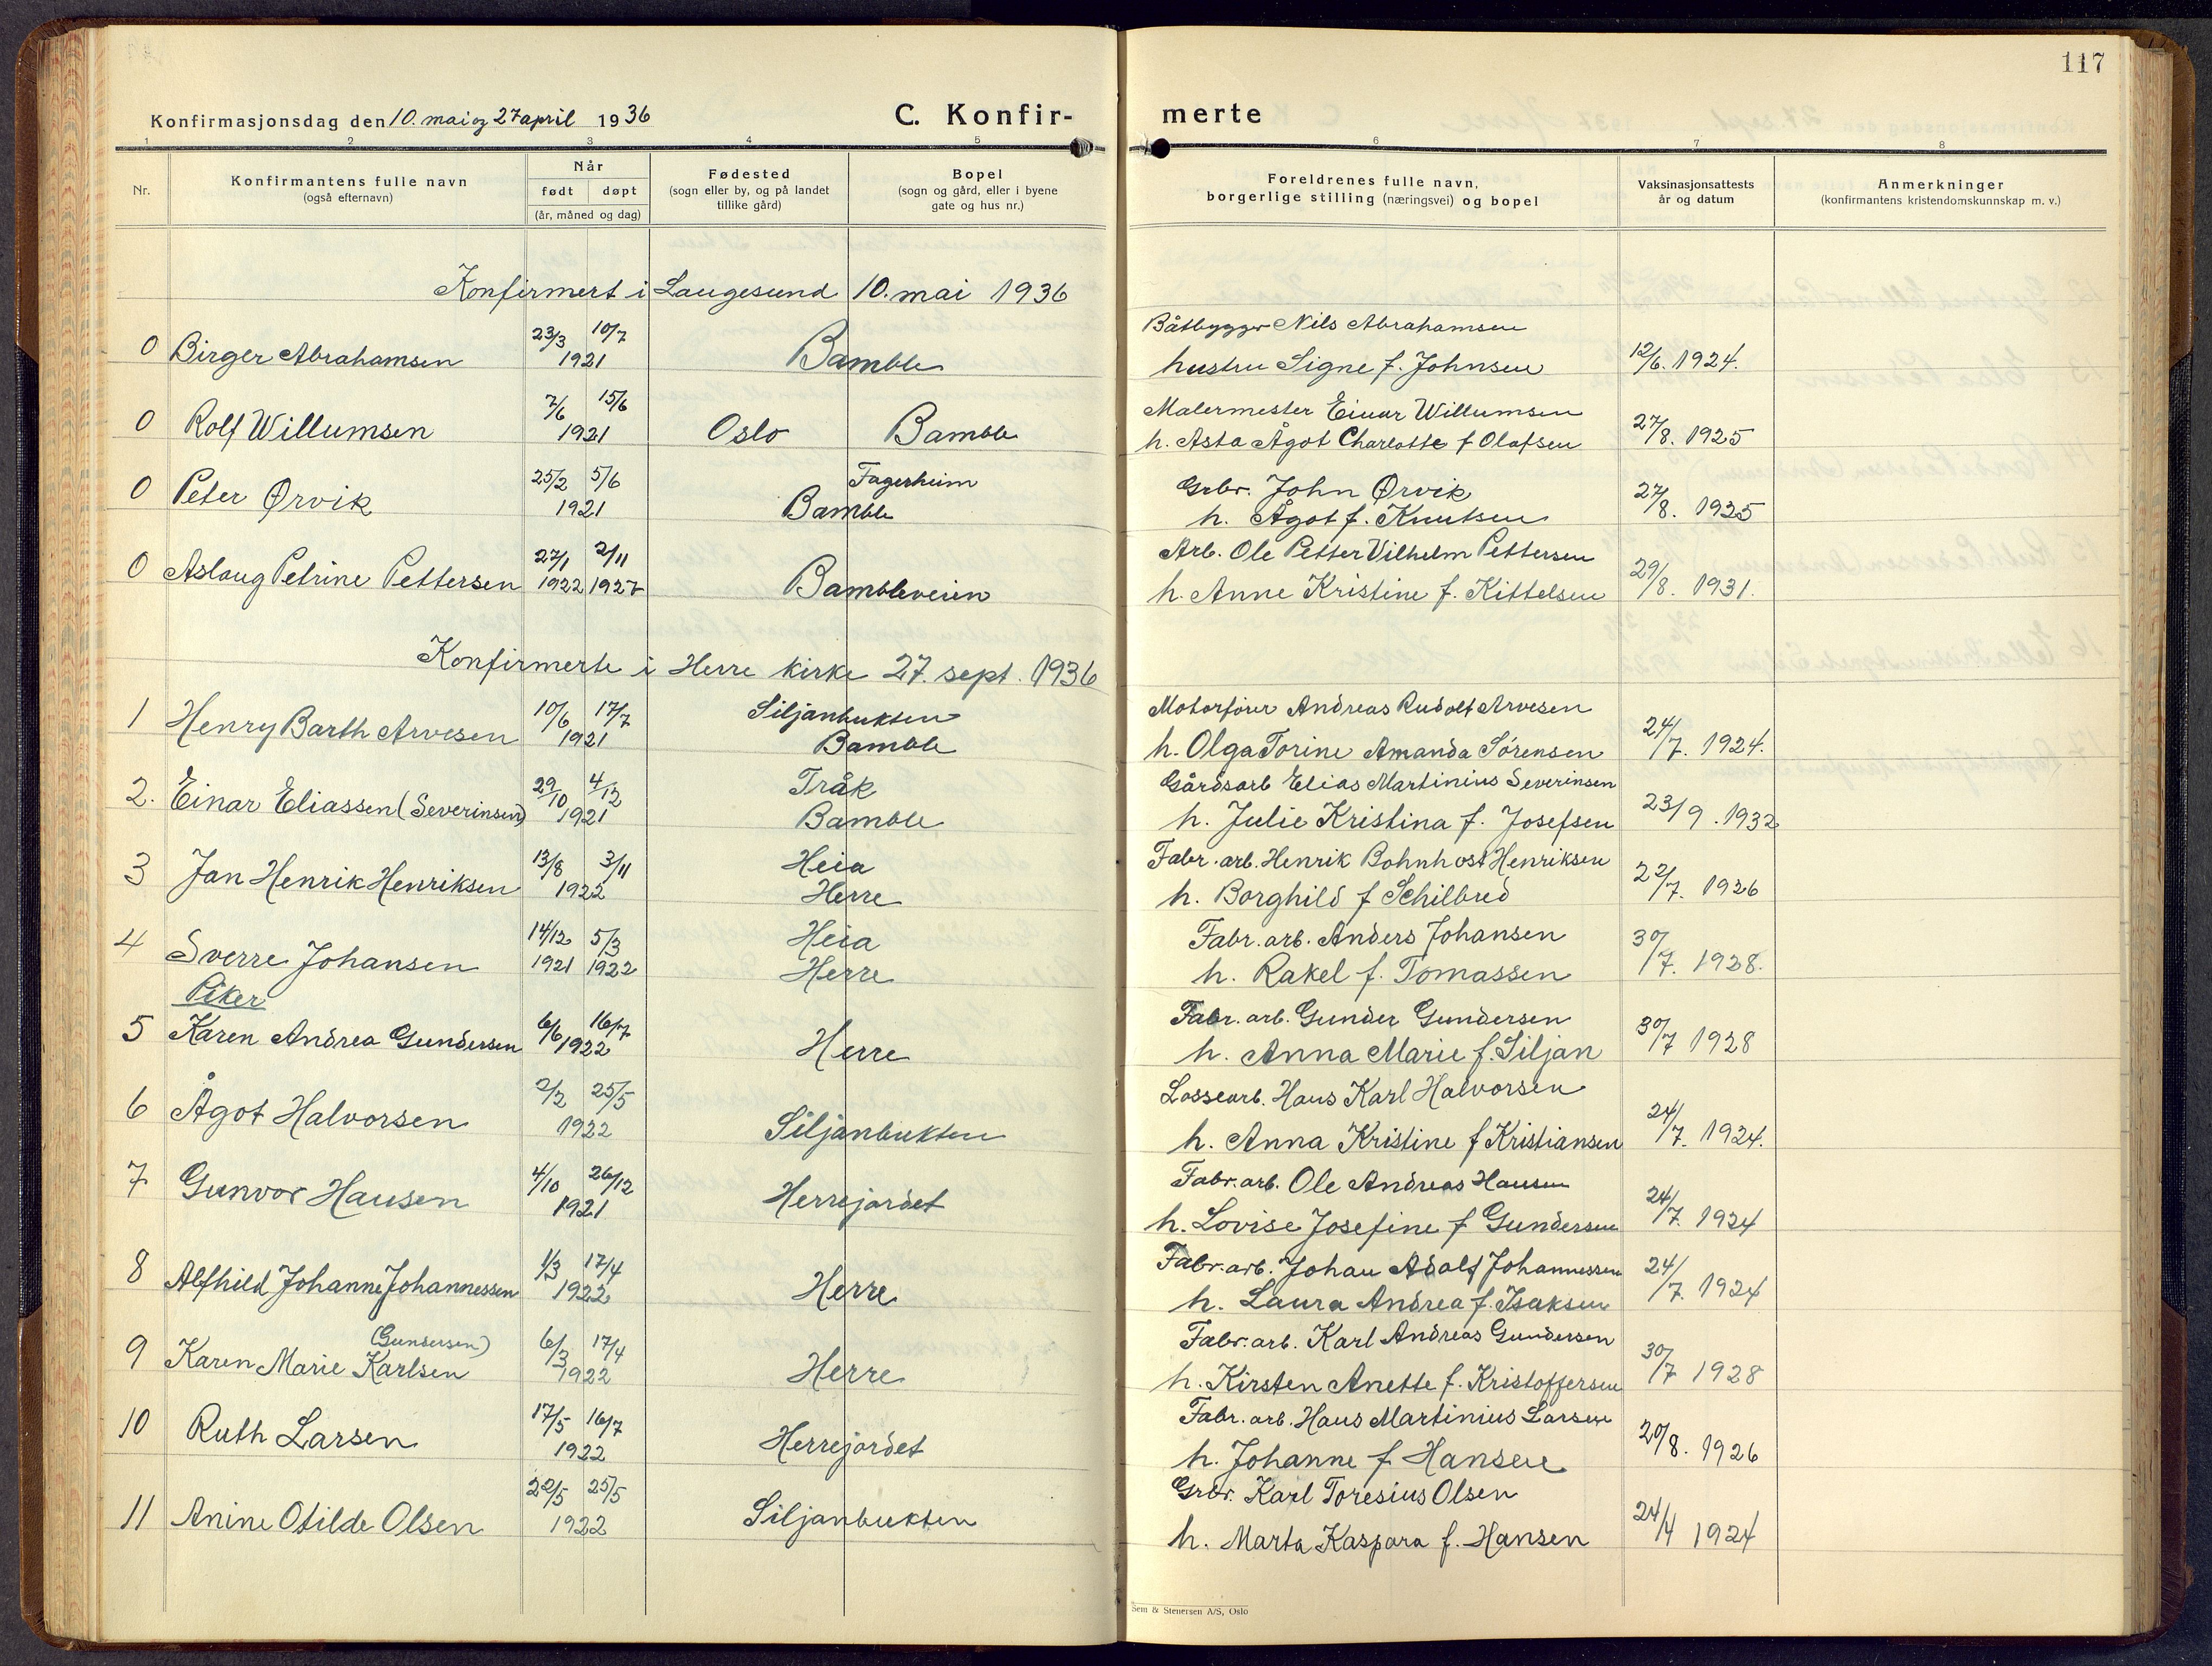 117
Konfirmasjonsdag den 10. mai og 27 april 1936
C. Konfir-
merte
1 2 3 4 5 6 7 8
Nr.
Konfirmantens fulle navn
(også efternavn)
Når
født døpt
(år, måned og dag)
Fødested
(sogn eller by, og på landet
tillike gård)
Bopel
(sogn og gård, eller i byene
gate og hus nr.)
Foreldrenes fulle navn,
borgerlige stilling (næringsvei) og bopel
Vaksinasjonsattests
år og datum
Anmerkninger
(konfirmantens kristendomskunnskap m. v.)
Konfirmert i Langesund 10. mai 1936
23/3 10/7 Båtbygger Nils Abrahamsen
0 Birger Abrahamsen 1921 Bamble hustru Signe f. Johnsen 12/6. 1924.
7/6 15/6 Malermester Einar Willumsen
0 Rolf Willumsen 1921 Oslo Bamble h. Asta Ågot Charlotte f Olafsen 27/8. 1925
25/2 5/6 Fagerheim Grbr. John Ørvik
0 Peter Ørvik 1921 Bamble h. Ågot f. Knutsen 27/8. 1935
27/1 2/11 Arb. Ole Petter Vilhelm Pettersen
0 Aslaug Petrine Pettersen 1922 1927 Bambleveien h. Anne Kristine f. Kittelsen 29/8. 1931.
Konfirmerte i Herre kirke 27. sept. 1936
10/6 17/7 Siljanbukten Motorfører Andreas Rudolf Arvesen
1 Henry Barth Arvesen 1921 Bamble h. Olga Torine Amanda Sørensen 24/7. 1924.
29/10 4/12 Tråk Gårdsarb Elias Martinius Severinsen
2. Einar Eliassen (Severinsen) 1921 Bamble h. Julie Kristina f. Josefsen 23/9. 1932
13/8 3/11 Heia Fabr. arb. Henrik Bohnhost Henriksen
3 Jan Henrik Henriksen 1922 Herre h. Borghild f Schilbred 22/7. 1926
14/12 5/3 Heia Fabr. arb. Anders Johansen
4 Sverre Johansen 1921 1922 Herre h. Rakel f. Tomassen 30/7. 1928.
Piker
6/6 16/7 Fabr. arb. Gunder Gundersen
5 Karen Andrea Gundersen 1922 Herre h. Anna Marie f. Siljan 30/7 1928
2/2 25/5 Lossearb. Hans Karl Halvorsen
6 Ågot Halvorsen 1922 Siljanbukten h. Anna Kristine f Kristiansen 24/7. 1924.
4/10 26/12 Fabr. arb. Ole Andreas Hansen
7 Gunvor Hansen 1921 Herrejordet h. Lovise Josefine f Gundersen 24/7. 1924
1/3 17/4 Fabr. arb. Johan Adolf Johannessen
8 Alfhild Johanne Johannessen 1922 Herre h. Laura Andrea f. Isaksen 24/7. 1924
(Gundersen) 6/3 17/4 Fabr. arb. Karl Andreas Gundersen
9 Karen Marie Karlsen 1922 Herre h. Kirsten Anette f. Kristoffersen 30/7 1928
17/5 16/7 Fabr. arb. Hans Martinius Larsen
10 Ruth Larsen 1922 Herrejordet h. Johanne f Hansen 20/8. 1926
22/5 25/5 Grbr. Karl Toresius Olsen
11 Anine Otilde Olsen 1922 Siljanbukten h. Marta Kaspara f. Hansen 24/4 1924
Sem & Stenersen A/S, Oslo